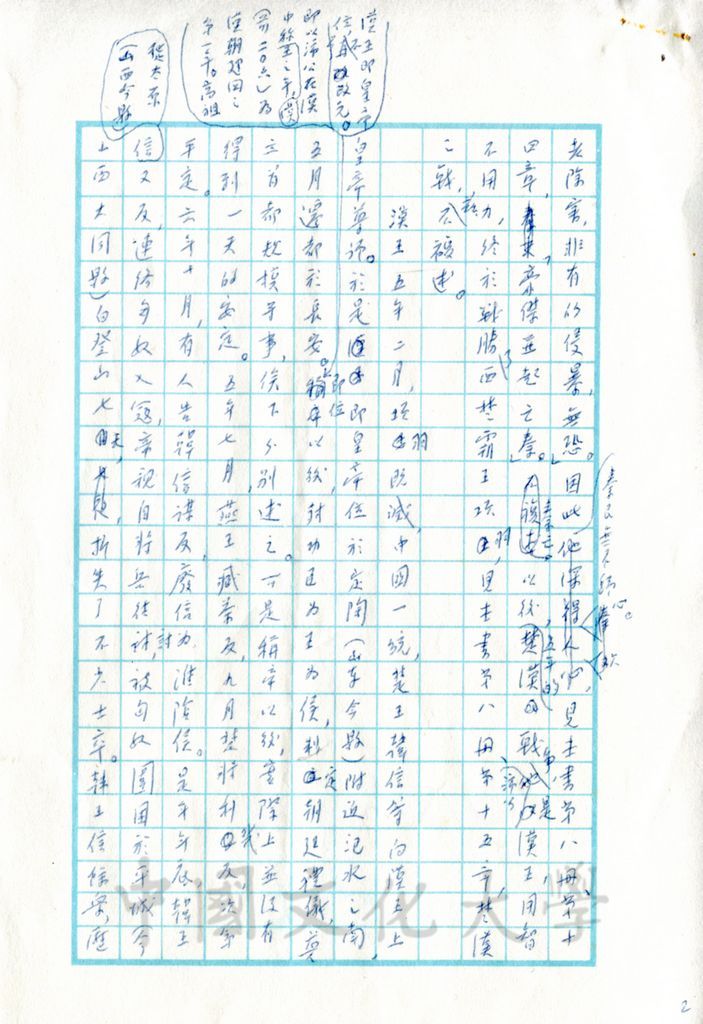 老除害,非有所侵暴,無恐。」因此他深得人心,見本書第八冊第十
四章,豪傑並起亡秦。以後楚漢戰爭,漢王用智
不用力,終於戰勝西楚霸王項羽,見本書第八冊第十五章,楚漢
之戰,不複述。
漢王五年二月,項羽既滅,中國一統,楚王韓信等向漢王上
皇帝尊號。於是即皇帝位於定陶(山東今縣)附近汜水之南,
五月還都於長安。即位以後,封功臣為王為侯,制定朝廷禮儀,營
立首都規模等事,俟下分別述之。可是稱帝以後,實際上並沒有
得到一天的安定。五年七月,燕王臧荼反,九月楚將利幾反,次年
平定。六年十月,有人告韓信謀反,廢信為淮陰侯。是年年底,韓王
信又反,連絡匈奴入寇,帝親自將兵往討,被匈奴圍困於平城今
山西大同縣)白登山七天,折失了不少士卒。韓王信餘衆,歷
漢王即皇帝
位不改元。
即以沛公在漢
中稱王之年
(前二〇六)為
漢朝建國之
第一年。高祖
從太原
(山西今縣)
秦民無不歸心。
中國文化大學
2